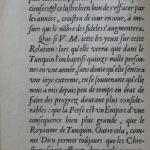 cieuses: & ce lustre bien loin de s'effacer par
les années, croistra de iour en iour, à me-
sure que le nombre des fideles s'augmentera.
Que si V. M. iette les yeux sur cette
Relation: lors qu'elle verra que dans le
Tunquin l'on baptise quinze mille person-
nes en une année, sans doute qu'elle sentira
une ioye extreme, en se iouvenant qu'elle a
des suiets qui sont en peu de temps en état de
faire des progrez dautant plus confide-
rables; que la Perse est un Empire d'une
consequence bien plus grande, que le
Royaume de Tunquin. Outre cela, com-
me Dieu permet toûjours que les Chre-